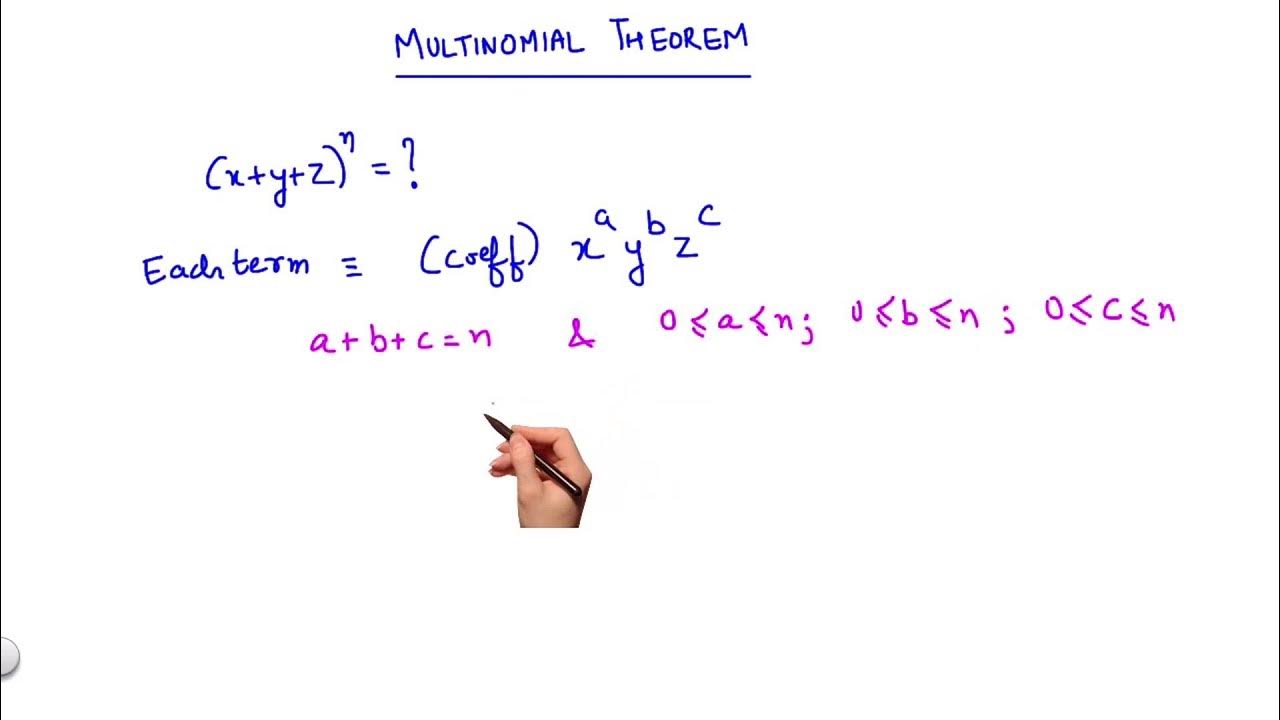 MULTINOMIAL THEOREM
(x+y+z)ⁿ = ?
Each term ≡ (coeff) xᵃ yᵇ zᶜ
a+b+c=n & 0⩽a⩽n; 0⩽b⩽n; 0⩽c⩽n